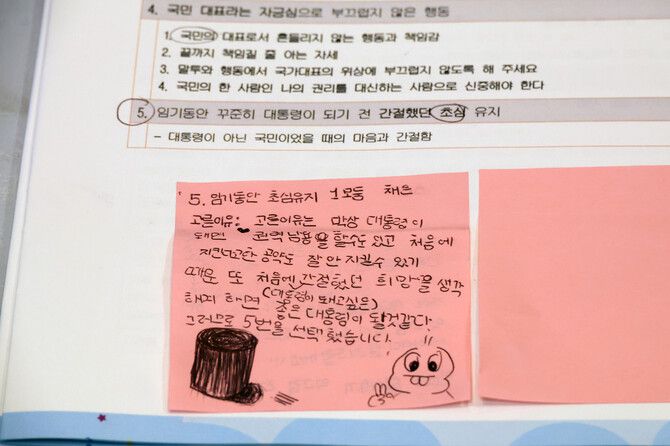 4. 국민 대표라는 자긍심으로 부끄럽지 않은 행동
1. 국민의 대표로서 흔들리지 않는 행동과 책임감
2. 끝까지 책임질 줄 아는 자세
3. 말투와 행동에서 국가대표의 위상에 부끄럽지 않도록 해 주세요
4. 국민의 한 사람인 나의 권리를 대신하는 사람으로 신중해야 한다
5. 임기동안 꾸준히 대통령이 되기 전 간절했던 초심 유지
- 대통령이 아닌 국민이었을 때의 마음과 간절함
5. 임기동안 초심유지 1모둠 채은
고른이유: 고른이유는 막상 대통령이
되면 권력남용을 할수도 있고 처음에
공약도 잘 안 지킬수 있기
때문 또 처음에 간절했던 희망을 생각
해지 하면 (대통령이 돼고싶은)
좋은 대통령이 될것같다
그러므로 5번을 선택했습니다.